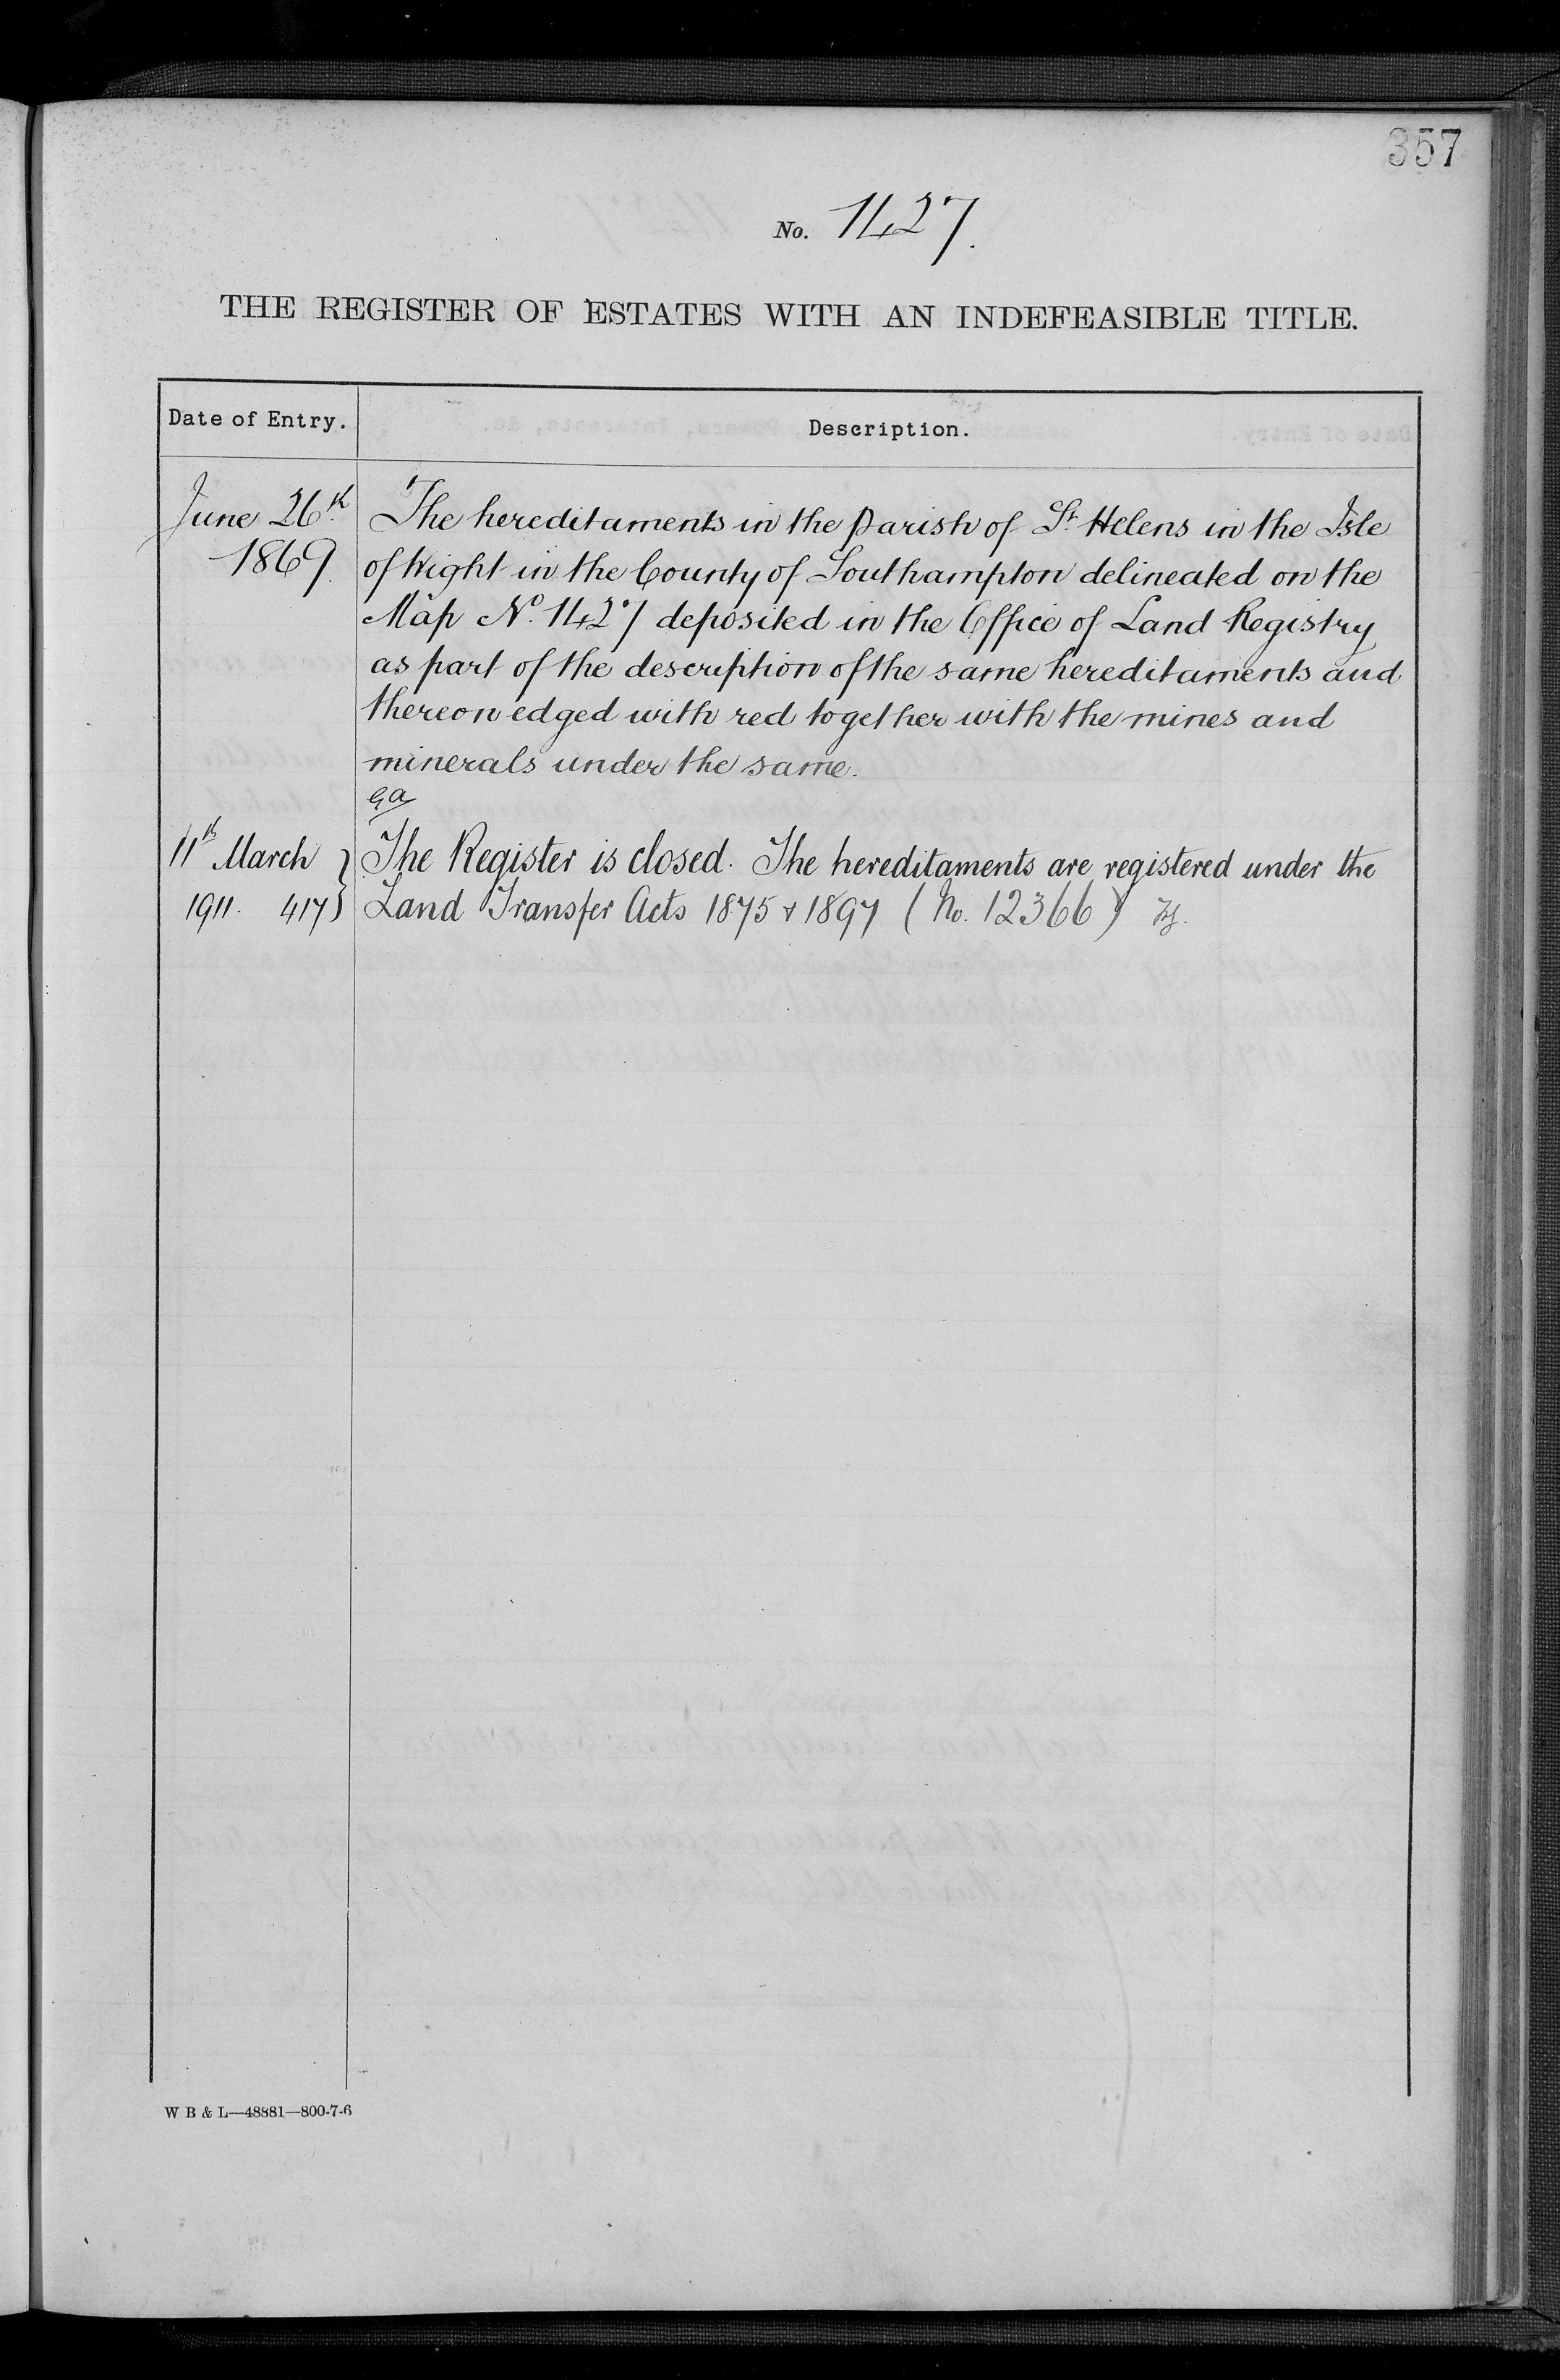 357
No. 1427.
THE REGISTER OF ESTATES WITH AN INDEFEASIBLE TITLE.
Date of Entry. Description.
June 26th The hereditaments in the Parish of St. Helens in the Isle
1869. of Wight in the County of Southampton delineated on the
Map No. 1427 deposited in the Office of Land Registry
as part of the description of the same hereditaments and
thereon edged with red together with the mines and
minerals under the same.
11th March } The Register is closed. The hereditaments are registered under the
1911. 417 } Land Transfer Acts 1875 & 1897 (No. 12366)
W B & L—48881—800-7-6